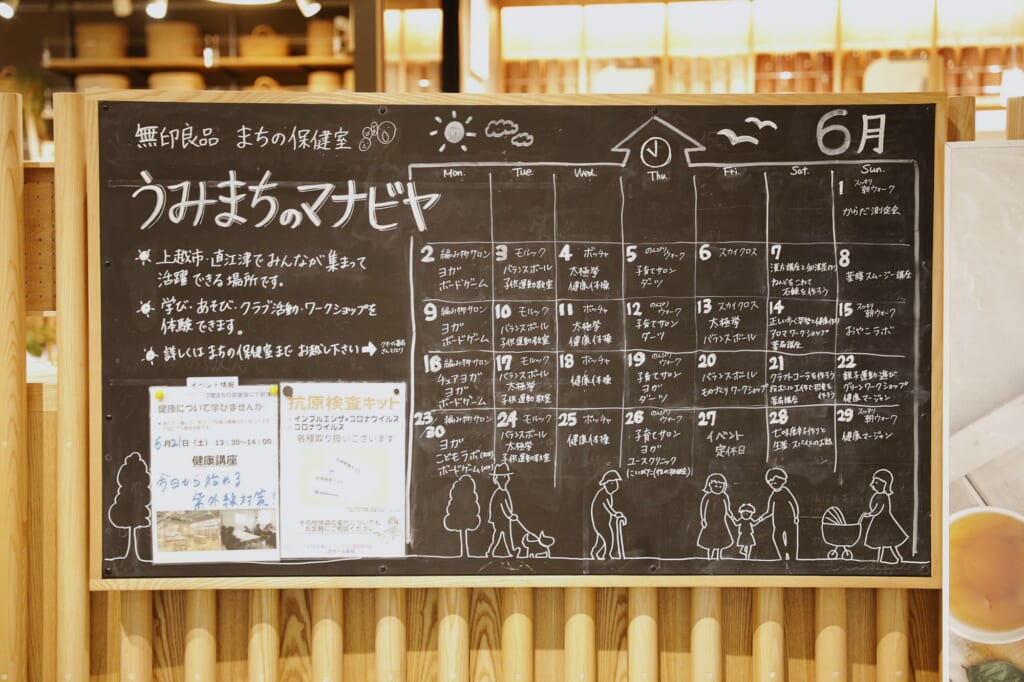 無印良品 まちの保健室
6月
うみまちのマナビヤ
上越市・直江津でみんなが集まって
活躍できる場所です。
学び・あそび・クラブ活動・ワークショップを
体験できます。
詳しくはまちの保健室までお越し下さい
Mon. Tue Wed. Thu. Fri. Sat. Sun.
1 スッキリ朝ウォーク
からだ測定会
2 編み物サロン
ヨガ
ボードゲーム
3 モルック
バランスボール
子供運動教室
4 ボッチャ
太極拳
健康体操
5 のんびりウォーク
子育てサロン
ダーツ
6 スカイクロス
7
石鹸を作ろう
8
薬膳スムージー講座
9 編み物サロン
ヨガ
ボードゲーム
10 モルック
バランスボール
子供運動教室
11 ボッチャ
太極拳
健康体操
12 のんびりウォーク
子育てサロン
ダーツ
13 スカイクロス
太極拳
14
アロマワークショップ
薬局講座
15 スッキリ朝ウォーク
おやこラボ
16 編み物サロン
チェアヨガ
ヨガ
ボードゲーム
17 モルック
バランスボール
太極拳
子供運動教室
18 ボッチャ
健康体操
19 のんびりウォーク
子育てサロン
ヨガ
ダーツ
20
バランスボール
ものづくりワークショップ
21
クラフトコーラを作ろう
薬局講座
22
親子運動遊び
グリーンワークショップ
健康マージャン
23
30 編み物サロン
ヨガ
こどもラボ
ボードゲーム
24 モルック
バランスボール
太極拳
子供運動教室
25 ボッチャ
健康体操
26 のんびりウォーク
子育てサロン
ヨガ
ユースクリニック
27
イベント
定休日
28
七味唐辛子作りと
生姜・スパイスのお話
29 スッキリ朝ウォーク
健康マージャン
イベント情報
健康について学びませんか
6月21日(土) 13:30~14:00
健康講座
今日から始める
紫外線対策!
抗原検査キット
・インフルエンザ+コロナウイルス
・コロナウイルス
各種取り扱いございます
その他体調の変化についても
お気軽にご相談ください